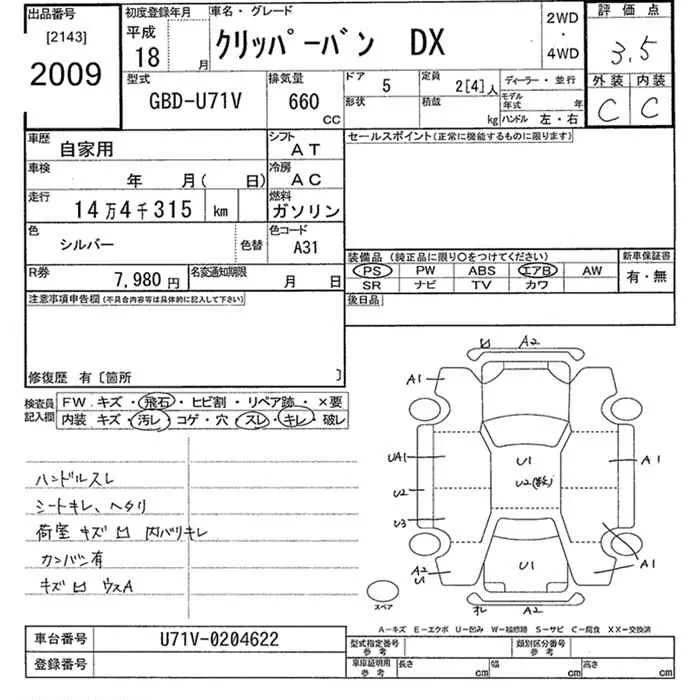 出品番号
[2143]
2009
初度登録年月
平成
18 月
車名・グレード
クリッパーバン DX
2WD
・
4WD
評価点
3.5
外装 内装
C C
型式
GBD-U71V
排気量
660
CC
ドア
5
形状
定員
2[4]人
積載
kg
ディーラー・並行
モデル
年式 年
ハンドル 左・右
車歴
自家用
シフト
AT
車検
年 月( 日)
冷房
AC
走行
14万4千315 km
燃料
ガソリン
色
シルバー
色替
色コード
A31
R券
7,980 円
名変通知期限
月 日
セールスポイント(正常に機能するものに限ります)
装備品 (純正品に限り○をつけてください)
PS PW ABS エアB AW
SR ナビ TV カワ
新車保証書
有・無
後日品
注意事項申告欄(不具合内容等は具体的に記入して下さい)
修復歴 有〔箇所 〕
検査員
記入欄
FW. キズ・飛石・ヒビ割・リペア跡・×要
内装 キズ・汚レ・コゲ・穴・スレ・キレ・破レ
ハンドルスレ
シートキレ、ヘタリ
荷室 キズ凹 内バリキレ
カンバン有
キズ凹 ウスA
凹 A2
A1
UA1
U2
U3
U1
A1
A1
U1
A2
U1
A2
スペア
A－キズ E－エクボ U－凹み W－補修跡 S－サビ C－腐食 XX－交換済
車台番号
U71V-0204622
登録番号
型式指定番号
参考
類別区分番号
参考
車庫証明用
参考
長さ cm
幅 cm
高さ cm